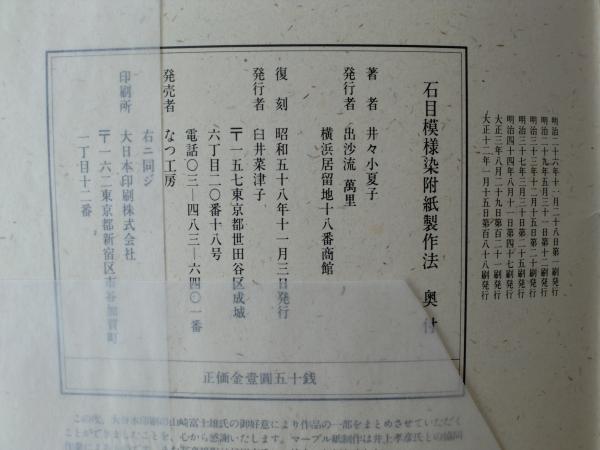 明治二十六年十一月二十八日第一刷発行
明治二十九年五月三十一日第十二刷発行
明治三十三年十二月十五日第二十刷発行
明治三十七年三月三十日第二十五刷発行
明治四十四年八月十一日第四十七刷発行
大正三年八月二十九日第百二十一刷発行
大正十二年一月十五日第百八十八刷発行
石目模様染附紙製作法　奥付
著者　井々小夏子
発行者　出沙流 萬里
横浜居留地十八番商館
復刻　昭和五十八年十一月三日発行
発行者　臼井菜津子
〒一五七東京都世田谷区成城
六丁目二〇番十八号
電話〇三―四八三―六四〇一番
発売者　なつ工房
右ニ同ジ
印刷所　大日本印刷株式会社
〒一六二東京都新宿区市谷加賀町
一丁目十二番
正価金壹圓五十銭
この度、大日本印刷の山崎富士雄氏の御好意により作品の一部をまとめさせていただく
ことができましたことを、心から感謝いたします。マーブル紙制作は井上孝彦氏との協同